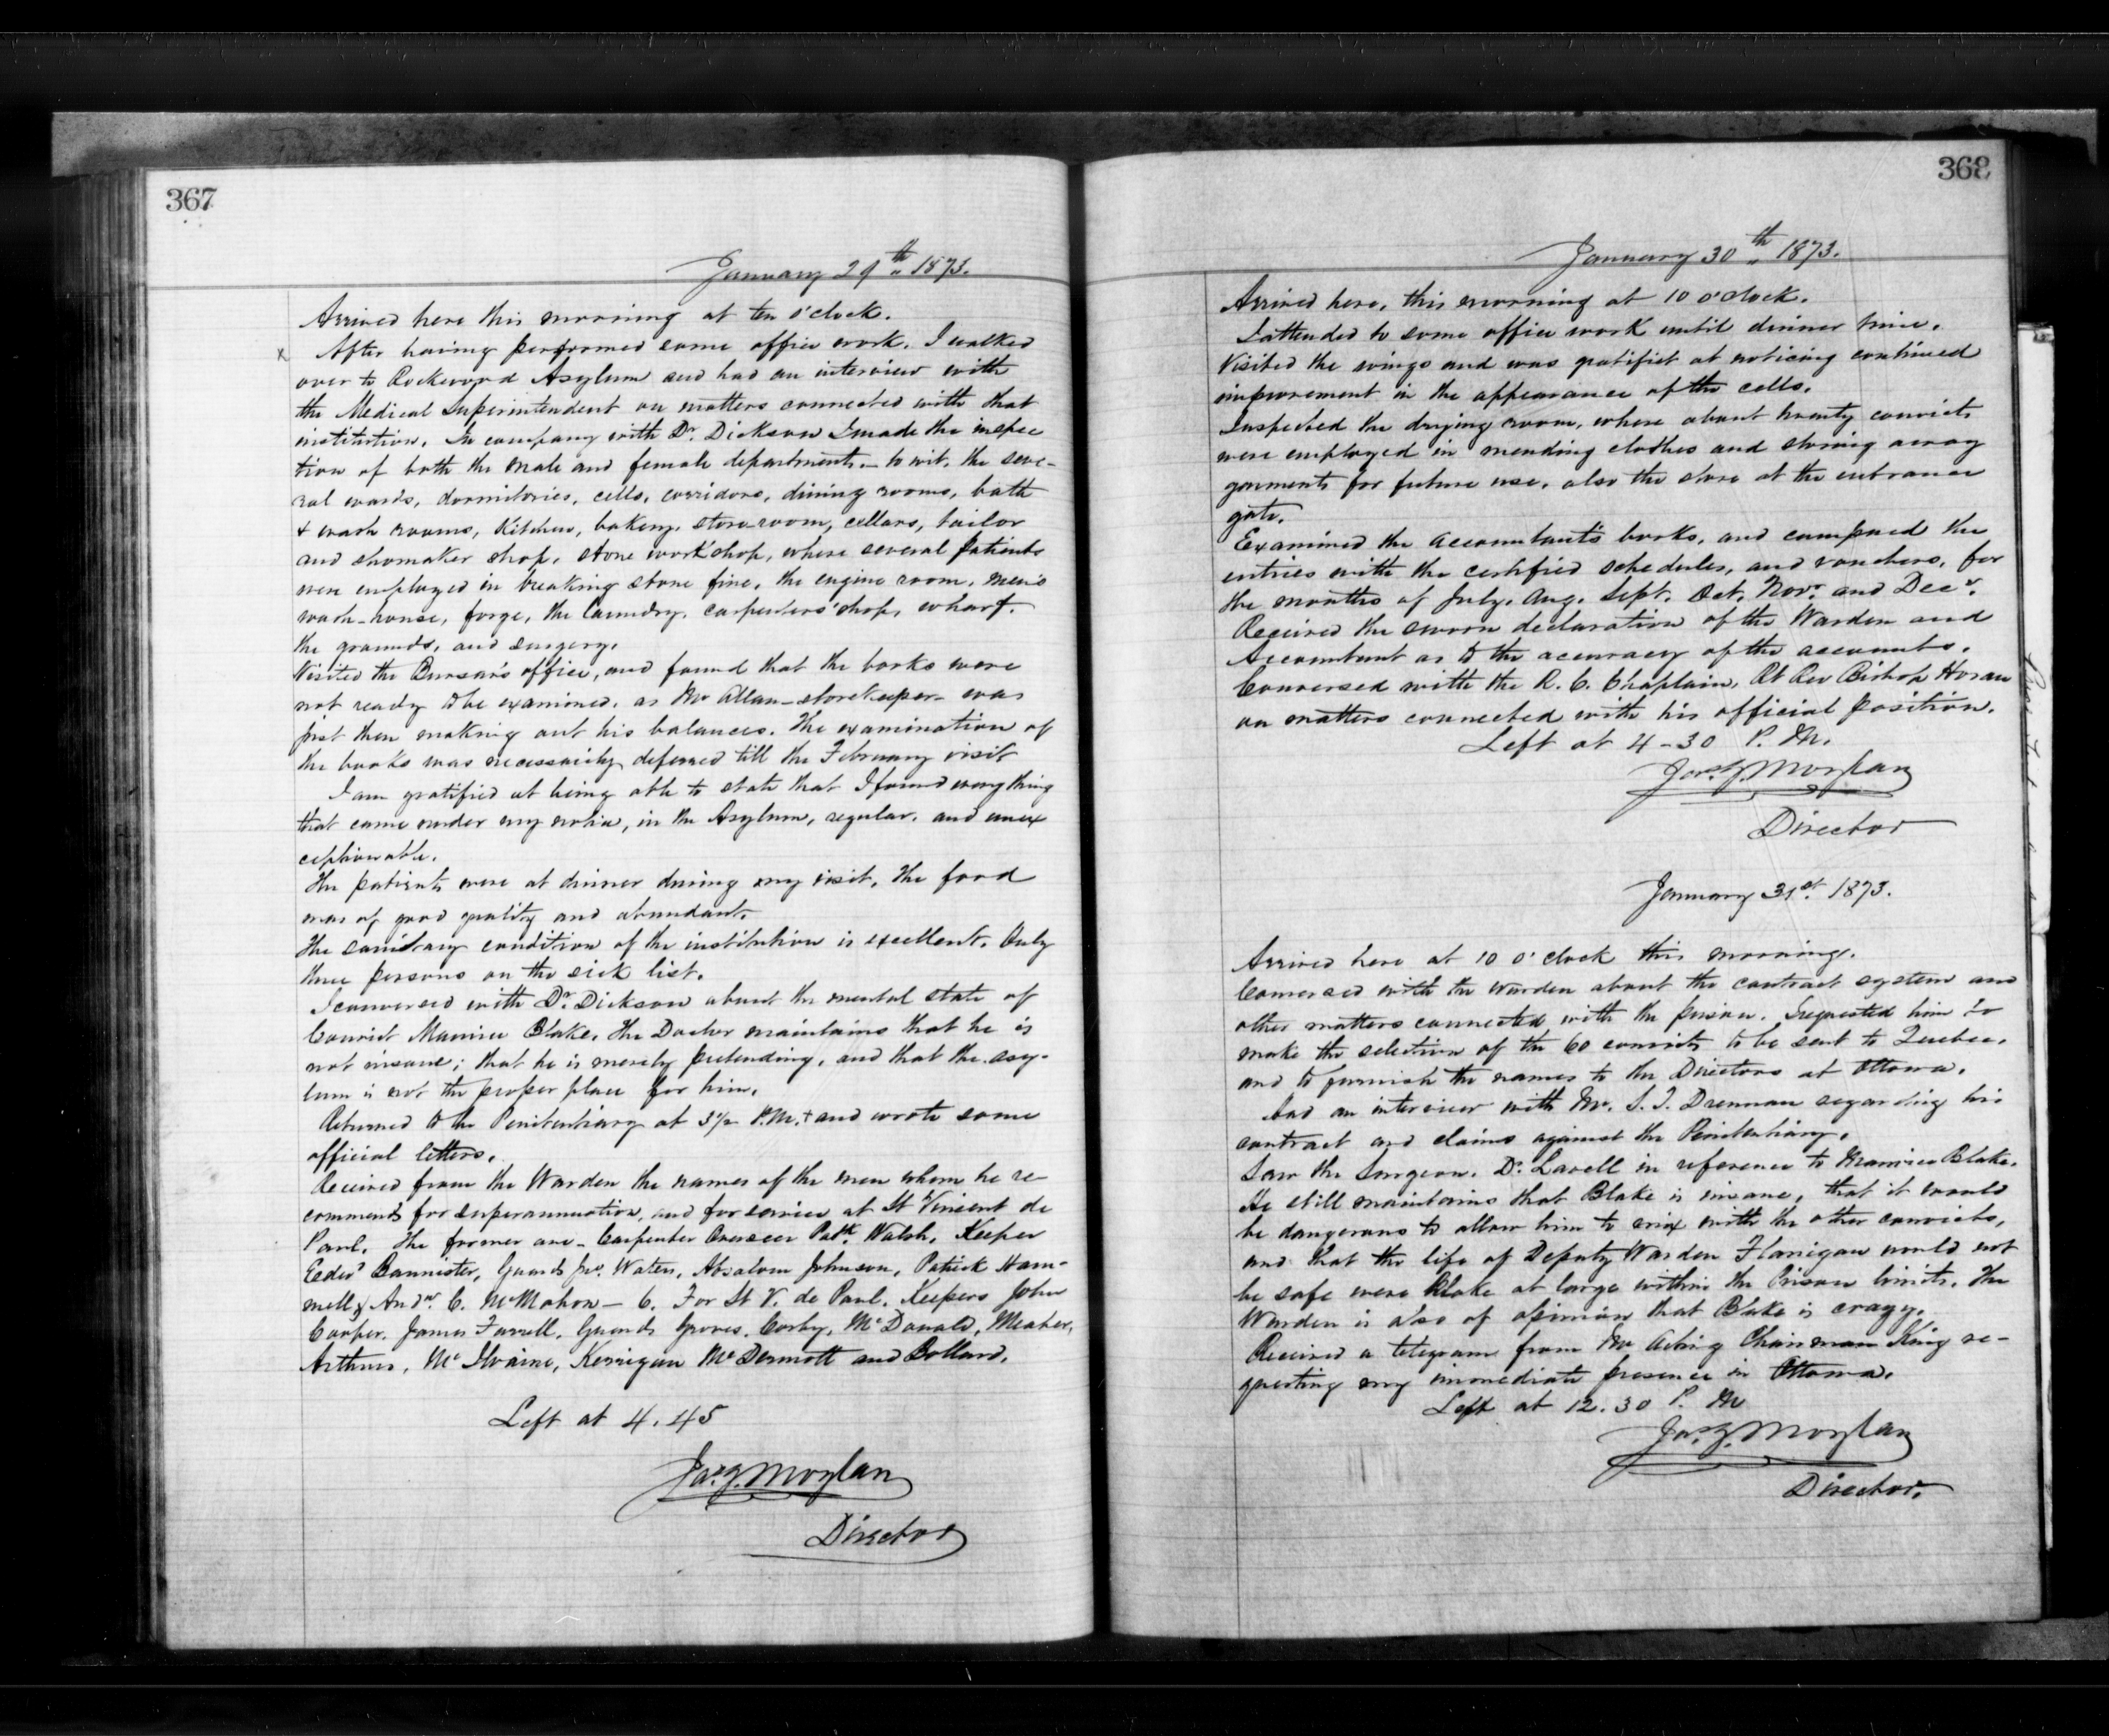 367
January 29th 1873.
Arrived here this morning at ten o'clock.
x After having performed some office work, I walked
over to Rockwood Asylum and had an interview with
the Medical Superintendent on matters connected with that
institution. In company with Dr. Dickson I made the inspec
tion of both the male and female departments - to wit, the seve-
ral wards, dormitories, cells, corridors, dining rooms, bath
& wash rooms, Kitchen, bakery, store-room, cellars, tailor
and shomaker shop, stone work shop, where several patients
were employed in breaking stone fine, the engine room, men's
wash-house, forge, the laundry, carpenters' shop, wharf.
the grounds, and surgery.
Visited the Bursar's office, and found that the books were
not ready to be examined, as Mr Allan - storekeeper - was
just then making out his balances. The examination of
the books was necessarily deferred till the February visit
I am gratified at being able to state that I found everything
that came under my notice, in the Asylum, regular, and unex
ceptionable.
The patients were at dinner during my visit, the food
was of good quality and abundant.
The sanitary condition of the institution is excellent. Only
three persons on the sick list.
I conversed with Dr. Dickson about the mental state of
Convict Maurice Blake. The Doctor maintains that he is
not insane; that he is merely pretending, and that the asy-
lum is not the proper place for him.
Returned to the Penitentiary at 3½ P.M. and wrote some
official letters.
Received from the Warden the names of the men whom he re-
commends for superannuation, and for service at St Vincent de
Paul. The former are - Carpenter Overseer Patk. Walsh, Keeper
Edwd Bannister, Guards Jno. Waters, Absalom Johnson, Patrick Ham-
mell & Andw. C. McMahon - 6. For St V. de Paul. Keepers John
Cooper, James Farrell, Guards Groves, Corby, McDonald, Meaher,
Arthurs, McIlvaine, Kerrigan McDermott and Bollard.
Left at 4.45
Jas. G. Moylan
Director
368
January 30th 1873.
Arrived here, this morning at 10 o'clock.
I attended to some office work until dinner time.
Visited the wings and was gratified at noticing continued
improvement in the appearance of the cells.
Inspected the drying room, where about twenty convicts
were employed in mending clothes and storing away
garments for future use, also the store at the entrance
gate.
Examined the Accountant's books, and compared the
entries with the certified schedules, and vouchers, for
the months of July, Aug. Sept. Oct. Novr. and Decr.
Received the sworn declaration of the Warden and
Accountant as to the accuracy of the accounts.
Conversed with the R. C. Chaplain, Rt Rev Bishop Horan
on matters connected with his official position.
Left at 4-30 P. M.
Jas. G. Moylan
Director
January 31st. 1873.
Arrived here at 10 o'clock this morning.
Conversed with the Warden about the contract system and
other matters connected with the prison. I requested him to
make the selection of the 60 convicts to be sent to Quebec,
and to furnish the names to the Directors at Ottawa.
Had an interview with Mr. S. T. Drennan regarding his
contract and claims against the Penitentiary.
Saw the Surgeon, Dr. Lavell in reference to Maurice Blake.
He still maintains that Blake is insane, that it would
be dangerous to allow him to mix with the other convicts,
and that the life of Deputy Warden Flanigan would not
be safe were Blake at large within the Prison limits. The
Warden is also of opinion that Blake is crazy.
Received a telegram from Mr Acting Chairman King re-
questing my immediate presence in Ottawa.
Left at 12.30 P. M
Jas. G. Moylan
Director.